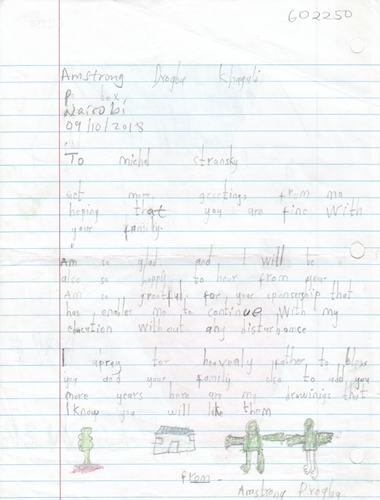 602250
Amstrong Drogba
P. box
Nairobi
09/10/2018
To michel stransky
Get more greetings from me
hoping that you are fine with
your family.
Am so glad and I will be
also so happy to hear from you.
Am so greatful for your sponsership that
has enables me to continue With my
education without any disturbance
I apray for heavenly father to bless
you and your family also to add you
more years here are my drawings that
I know you will like them
From
Amstrong Drogba